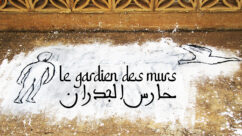 le gardien des murs
حارس الجدران